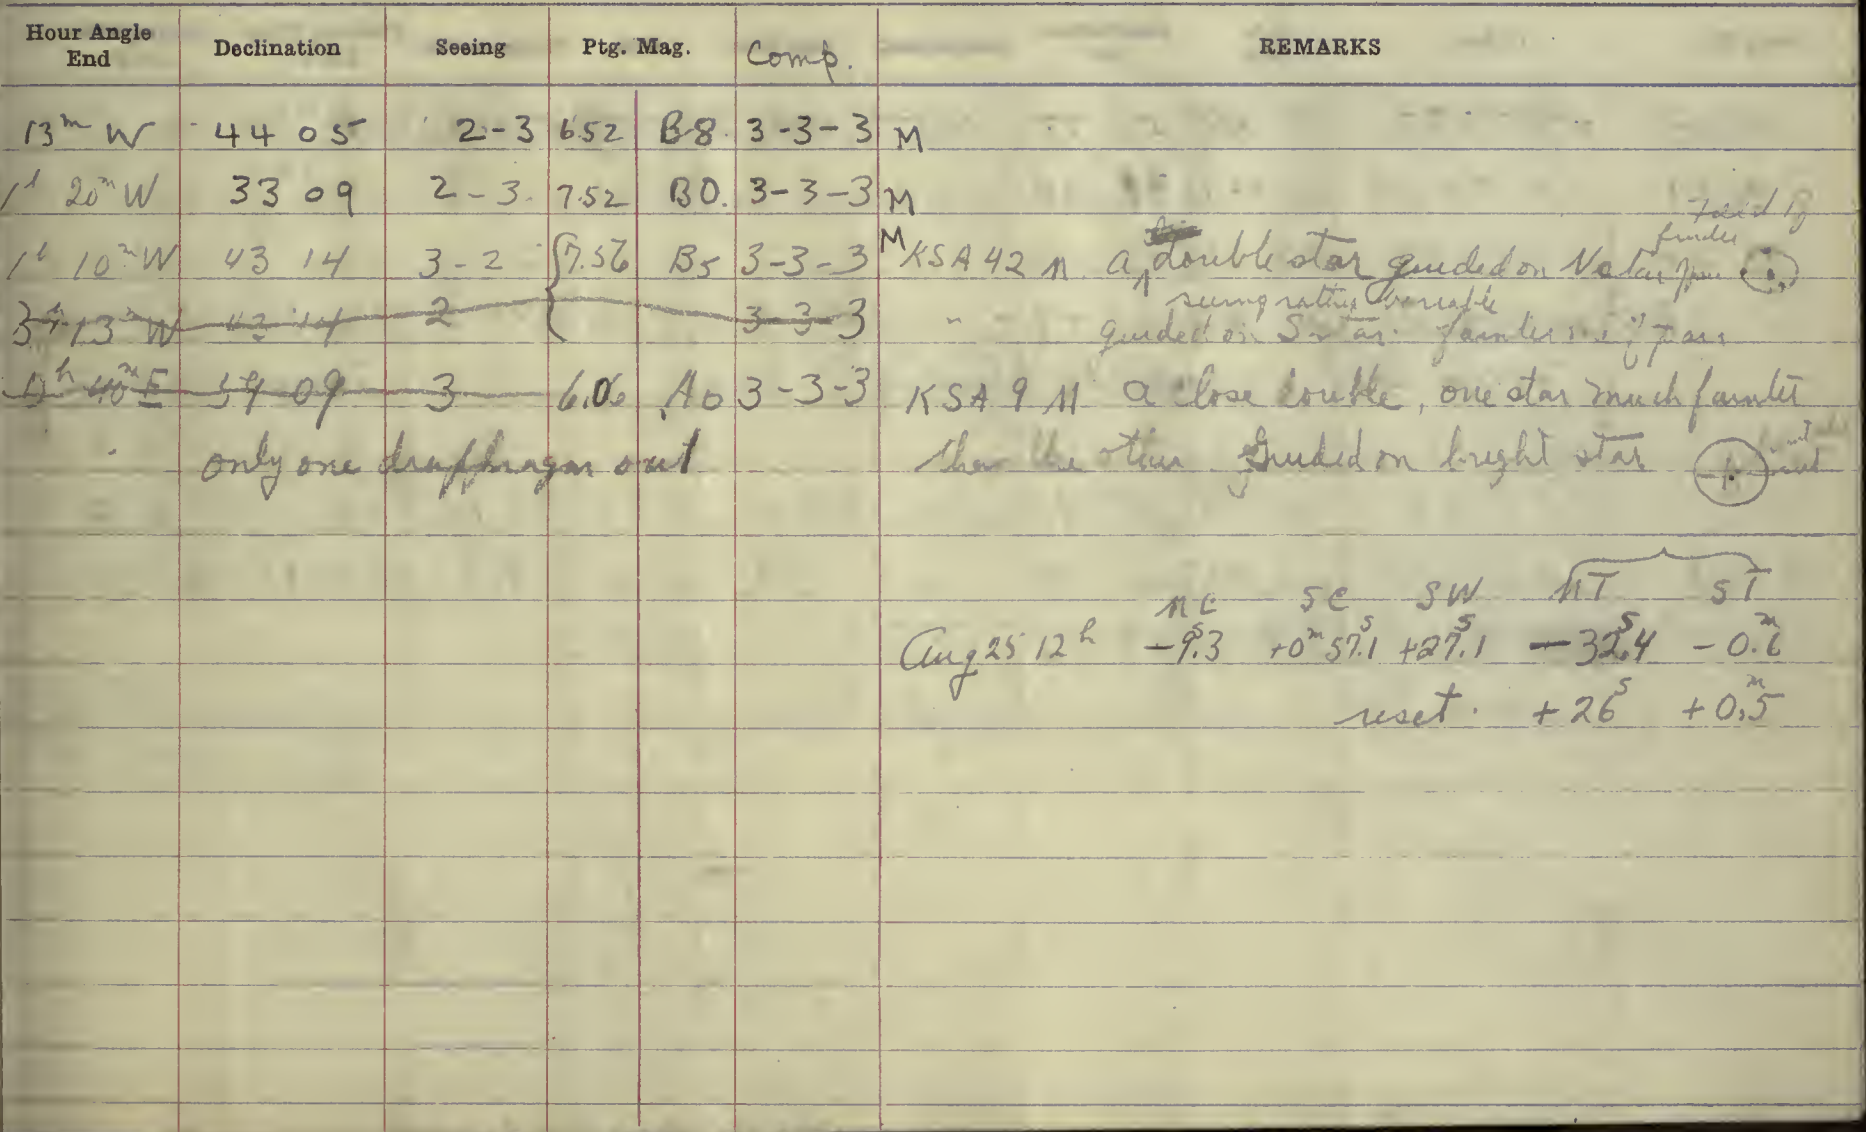 Hour Angle End Declination Seeing Ptg. Mag. Comp. REMARKS
13ᵐ W 44 05 2-3 6.52 B8 3-3-3 M
1ʰ 20ᵐ W 33 09 2-3 7.52 B0. 3-3-3 M
1ʰ 10ᵐ W 43 14 3-2 7.56 B5 3-3-3 M KSA 42 n a double star guided on N star
seeing rather variable
3ʰ 13ᵐ W 43 14 2 3-3-3 " guided on S star fainter of pair
40ᵐ E 59 09 3 6.06 A0 3-3-3 KSA 9 M a close double, one star much fainter
only one diaphragm out than the other Guided on bright star
NC SC SW NT ST
Aug 25 12ʰ -9ˢ.3 +0ᵐ 57ˢ.1 +27ˢ.1 -32ˢ.4 -0ᵐ.6
reset. +26ˢ +0ᵐ.5